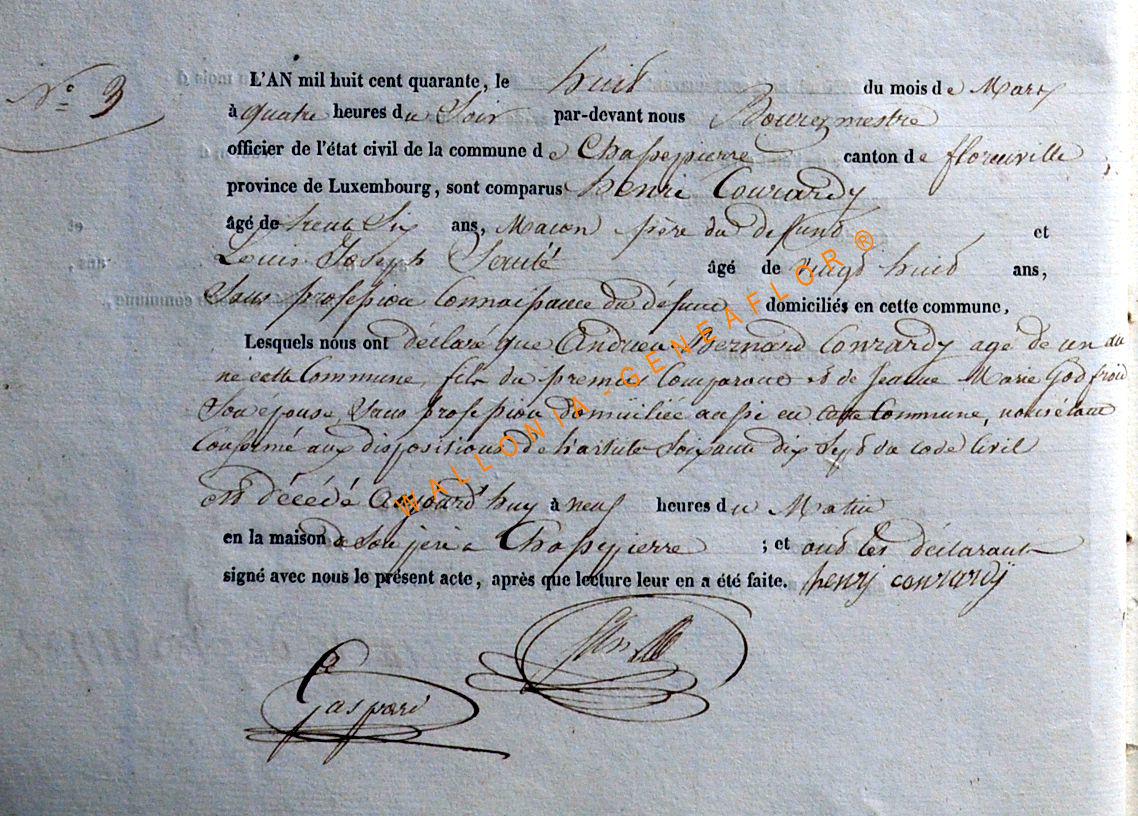 N° 3
L'AN mil huit cent quarante, le huit du mois de Mars
à quatre heures du Soir par-devant nous Bourgmestre
officier de l'état civil de la commune de Chassepierre canton de florenville,
province de Luxembourg, sont comparus henri Conrardy
âgé de trente Six ans, Macon père du defunt et
Louis Joseph âgé de vingt huit ans,
Sans profession Connaissance du défunt domiciliés en cette commune,
Lesquels nous ont déclaré que Andrieu Bernard Conrardy agé de un an
né cette Commune, fils du premier Comparant et de Jeanne Marie Godfroid
Son épouse, Sans profession domiciliée aussi en cette Commune, nous étant
Conformé aux dispositions de l'article Soixante dix Sept du code Civil
est décédé aujourd'huy à neuf heures du Matin
en la maison de Son père a Chassepierre ; et ont les déclarant
signé avec nous le présent acte, après que lecture leur en a été faite. henrj conrardÿ
Gaspard
WALLONIA-GENEAFLOR ®